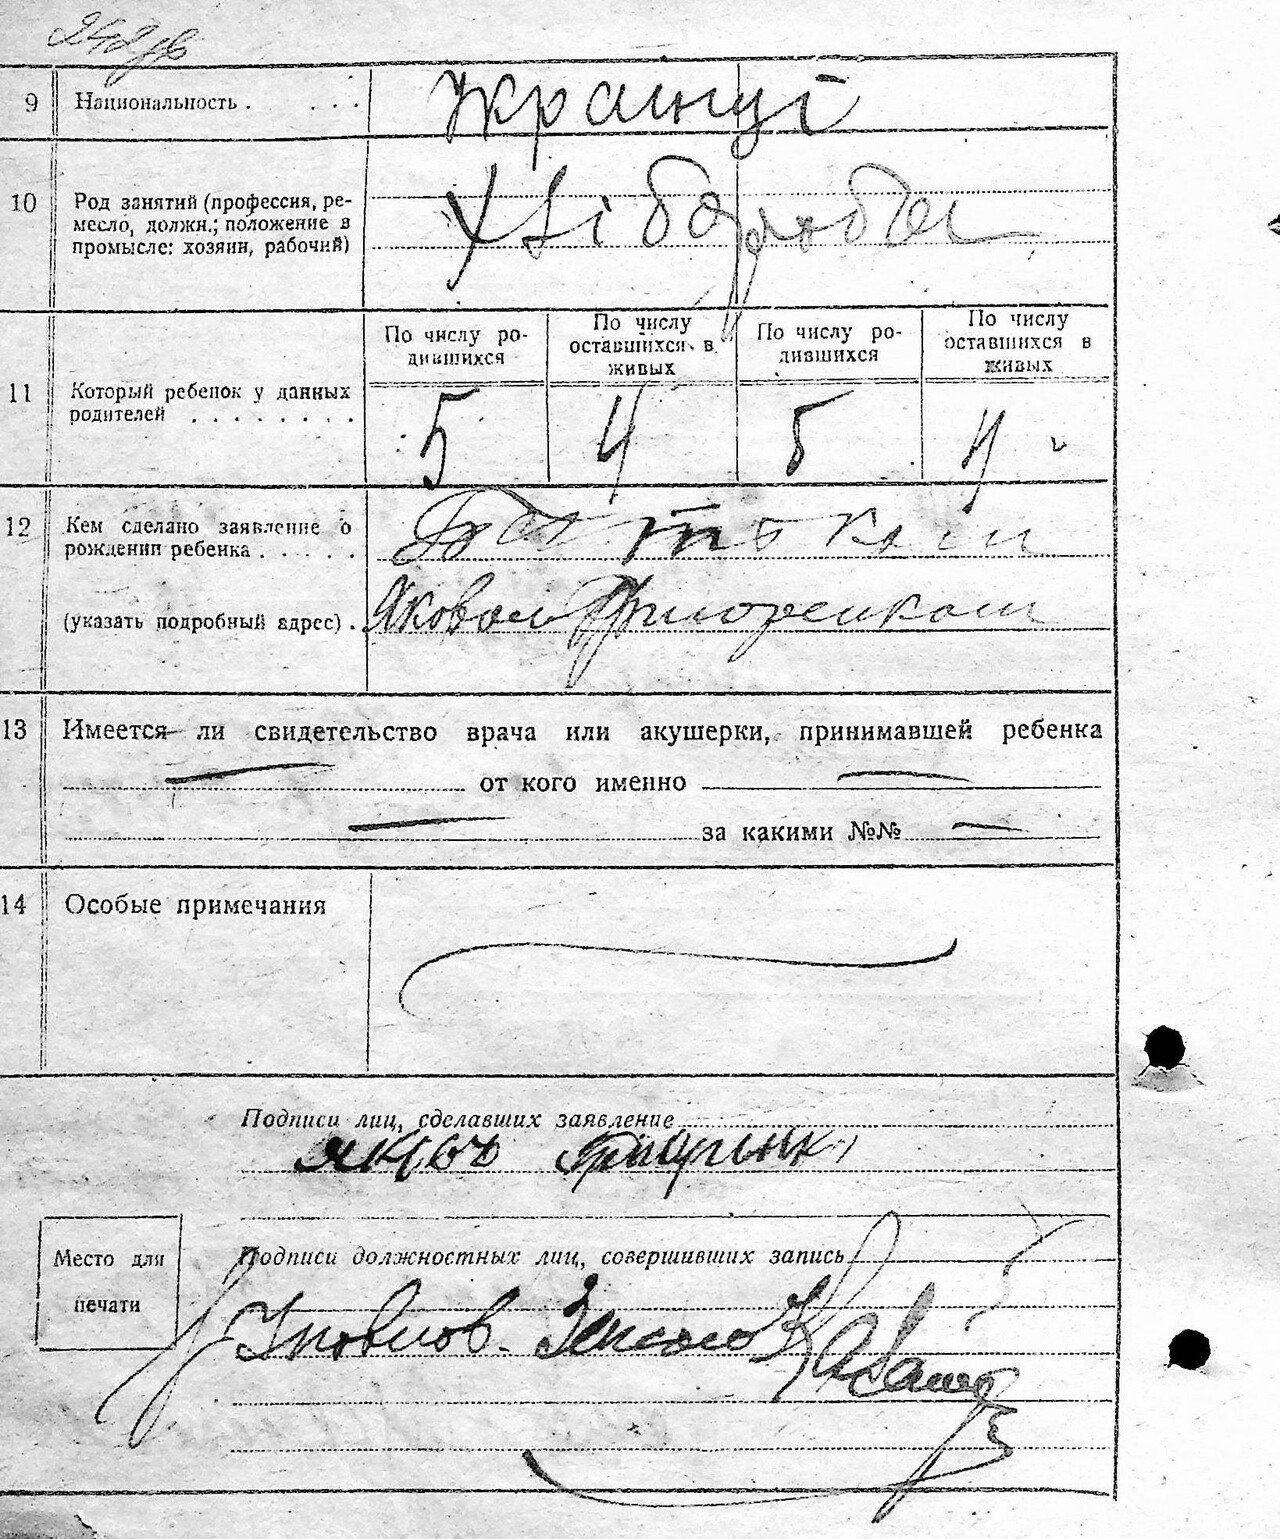 9 Национальность . . . . Українці
10 Род занятий (профессия, ре-
месло, должн.; положение в
промысле: хозяин, рабочий)
Хліборобы
По числу ро-
дившихся
По числу
оставшихся в
живых
По числу ро-
дившихся
По числу
оставшихся в
живых
11 Который ребенок у данных
родителей . . . . . . . .
5 4 5 4
12 Кем сделано заявление о
рождении ребенка . . . . .
Батьком
(указать подробный адрес) .
Яковом
13 Имеется ли свидетельство врача или акушерки, принимавшей ребенка
— от кого именно —
— за какими №№ —
14 Особые примечания
Подписи лиц, сделавших заявление
Место для
печати
Подписи должностных лиц, совершивших запись